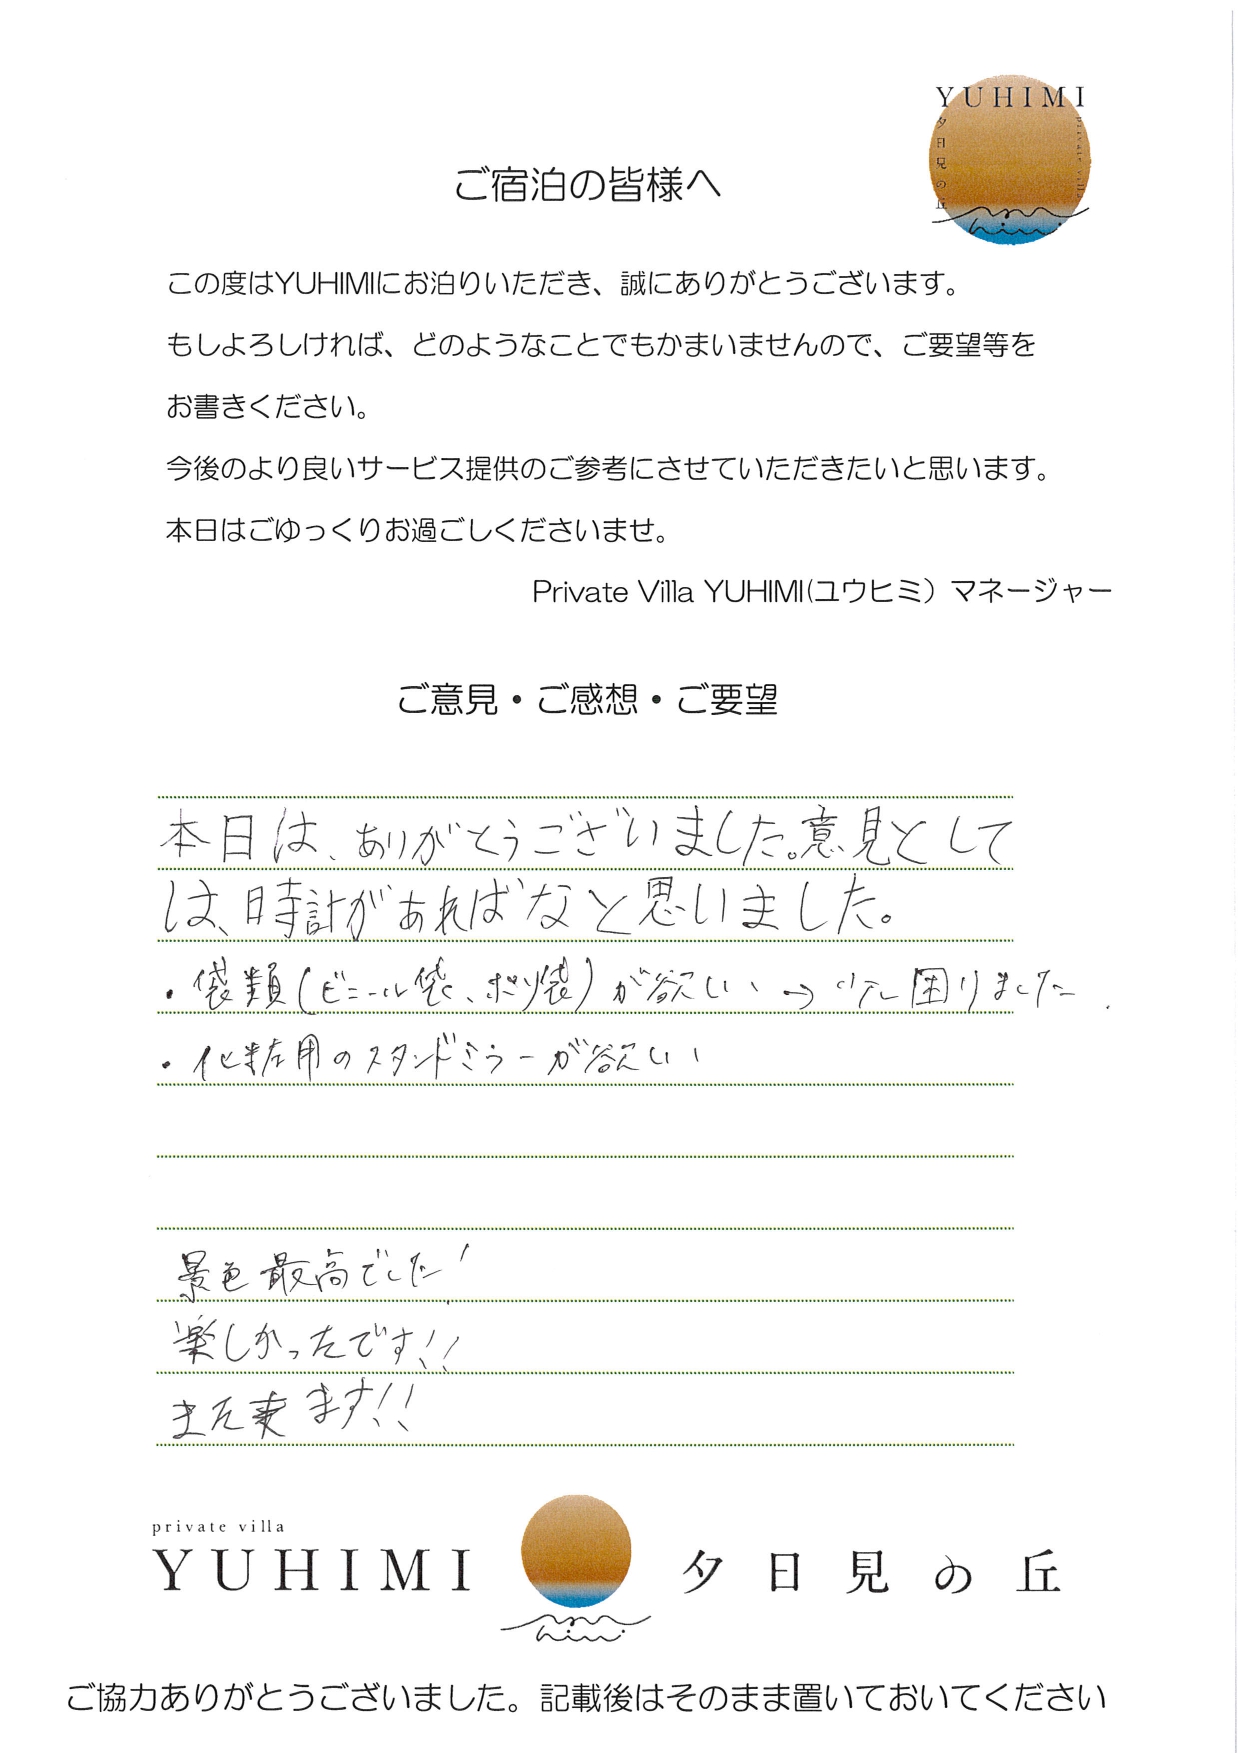 YUHIMI
夕日見の丘
private villa
ご宿泊の皆様へ
この度はYUHIMIにお泊りいただき、誠にありがとうございます。
もしよろしければ、どのようなことでもかまいませんので、ご要望等を
お書きください。
今後のより良いサービス提供のご参考にさせていただきたいと思います。
本日はごゆっくりお過ごしくださいませ。
Private Villa YUHIMI(ユウヒミ）マネージャー
ご意見・ご感想・ご要望
本日は、ありがとうございました。意見として
は、時計があればなと思いました。
・袋類(ビニール袋、ポリ袋)が欲しい→少し困りました
・化粧用のスタンドミラーが欲しい
景色最高でした!
楽しかったです!!
また来ます!!
private villa
YUHIMI 夕日見の丘
ご協力ありがとうございました。記載後はそのまま置いておいてください